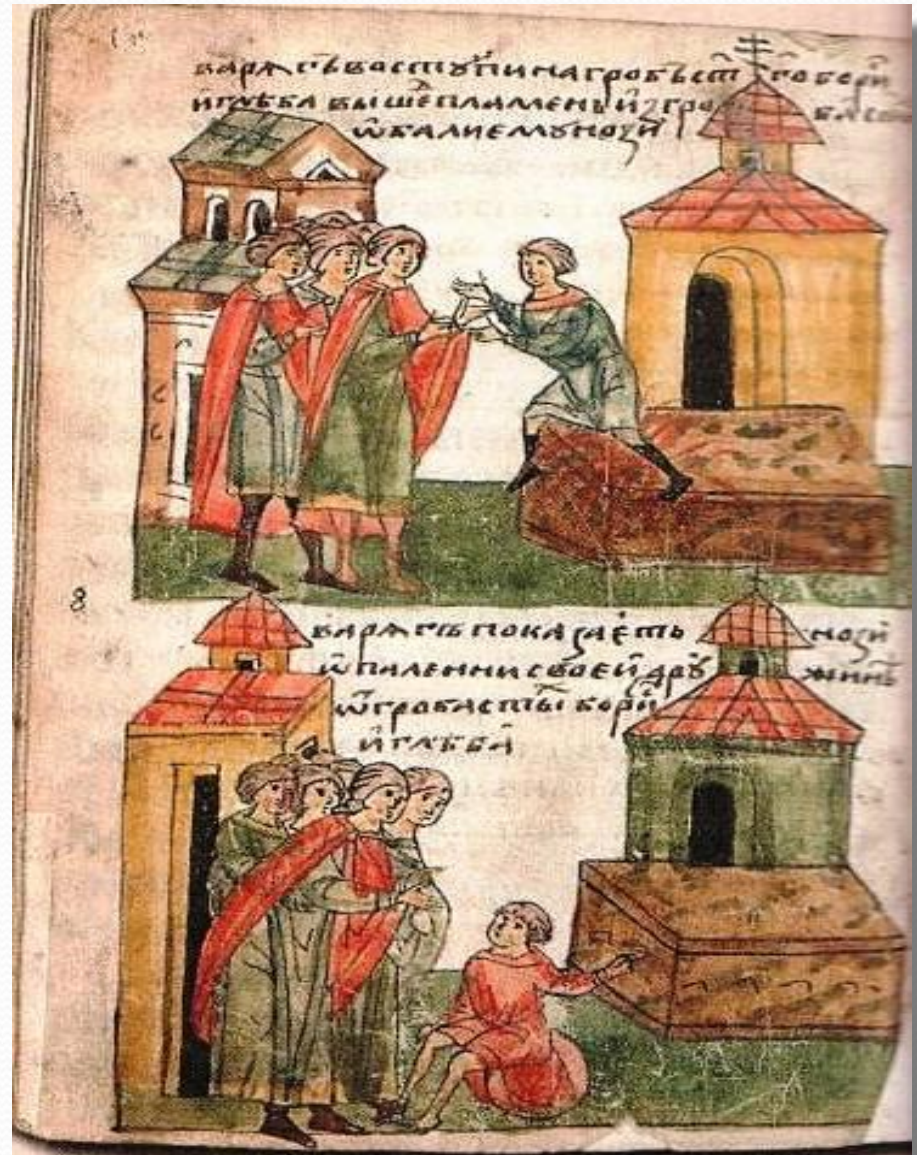 варѧгъ воступи на гробъ ст҃го бори
и глѣба вышеⷣ пламень из гро ба
ѡпали ему нозѣ
варѧгъ показаетъ нозѣ
ѡпаленни своей дру жинѣ
ѿ гроба ст҃ы бори
и глѣба